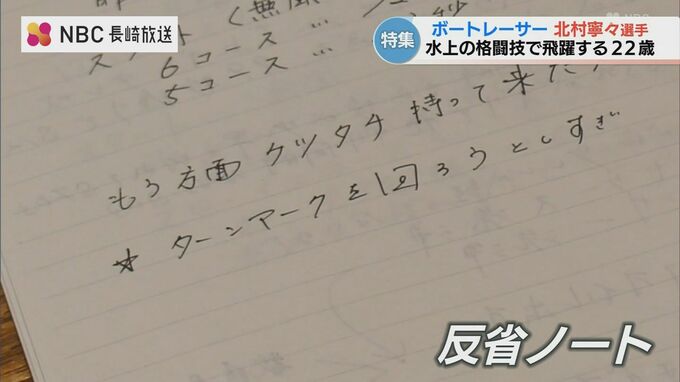 NBC 長崎放送
特集
ボートレーサー 北村寧々選手
水上の格闘技で飛躍する22歳
6コース…
5コース…
もう方面 ケツタチ 持って来た
* ターンマークを回ろうとしすぎ
反省ノート